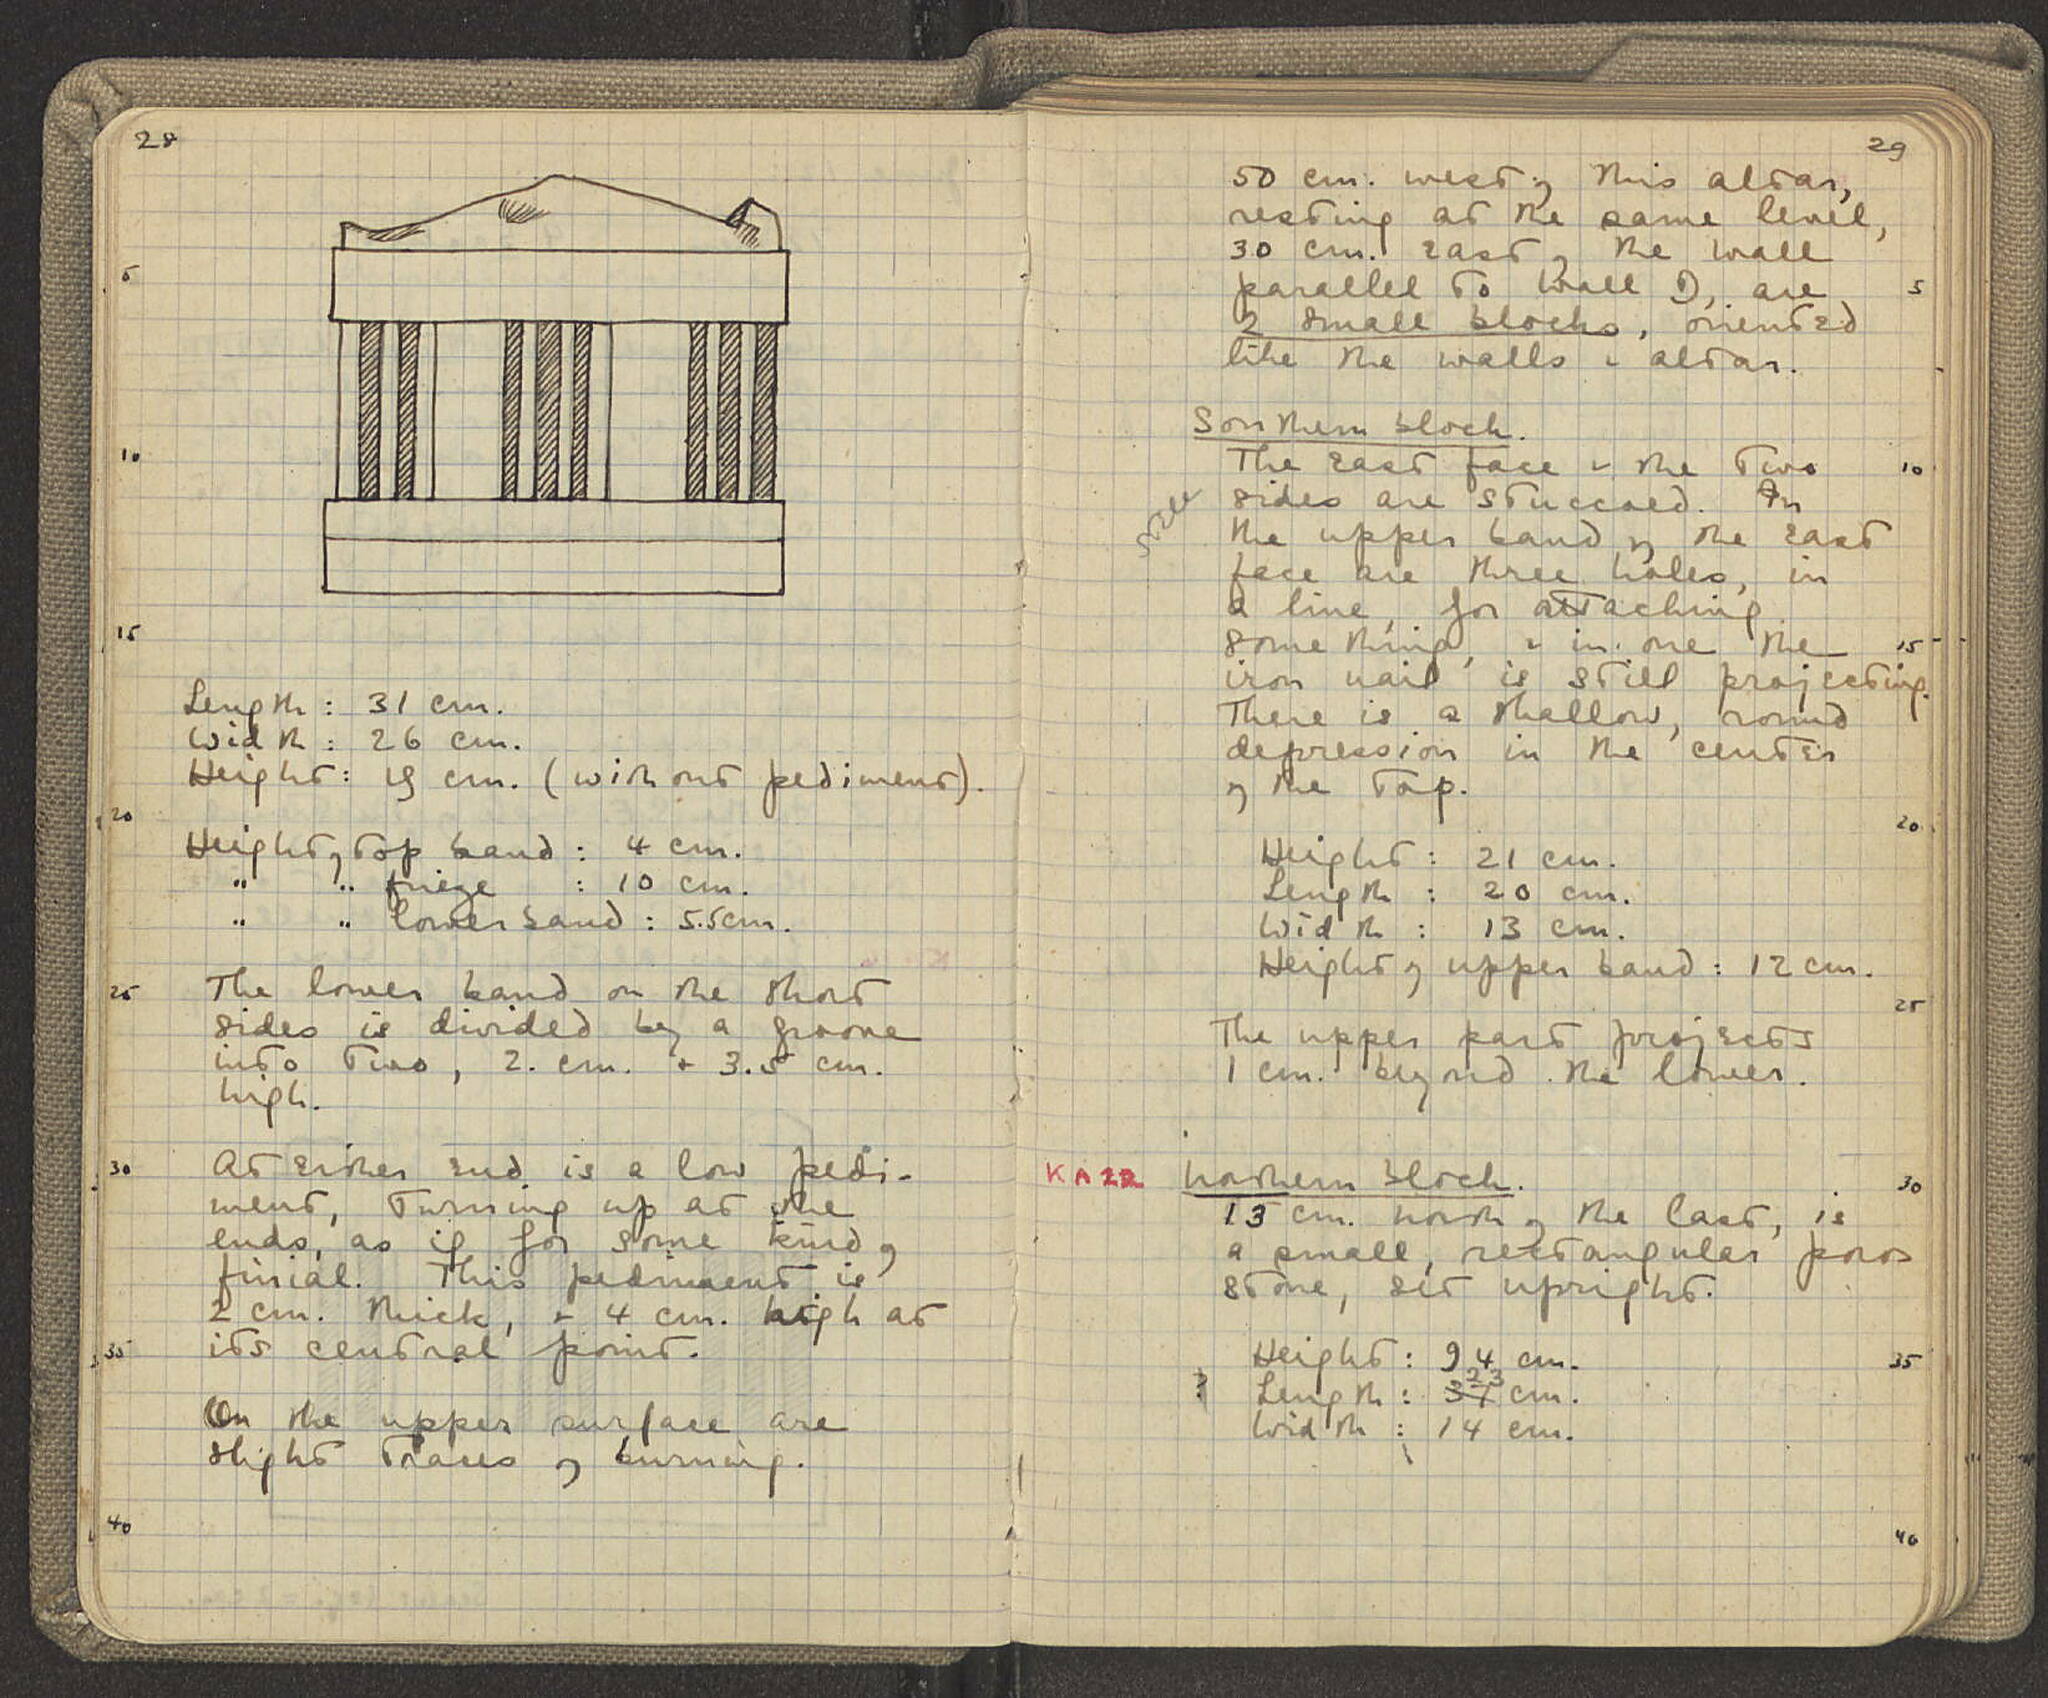 28
5
10
15
20
25
30
35
40
Length : 31 cm.
Width : 26 cm.
Height : 19 cm. (without pediment).
Height of top band : 4 cm.
" " frieze : 10 cm.
" " lower band : 5.5 cm.
The lower band on the short
sides is divided by a groove
into two, 2. cm. + 3.5 cm.
high.
At either end is a low pedi-
ment, turning up at the
ends, as if for some kind of
finial. This pediment is
2 cm. thick, + 4 cm. high at
its central point.
On the upper surface are
slight traces of burning.
29
5
10
15
20
25
30
35
40
50 cm. west of this altar,
resting at the same level,
30 cm. east of the wall
parallel to wall D, are
2 small blocks, oriented
like the walls + altar.
Southern block.
The east face + the two
sides are stuccoed. In
the upper band of the east
face are three holes, in
a line, for attaching
something, + in one the
iron nail is still projecting.
There is a shallow, round
depression in the center
of the top.
Height : 21 cm.
Length : 20 cm.
Width : 13 cm.
Height of upper band : 12 cm.
The upper part projects
1 cm. beyond the lower.
KA22 Northern block.
13 cm. north of the last, is
a small, rectangular poros
stone, set upright.
Height : 94 cm.
23
? Length : 37 cm.
Width : 14 cm.